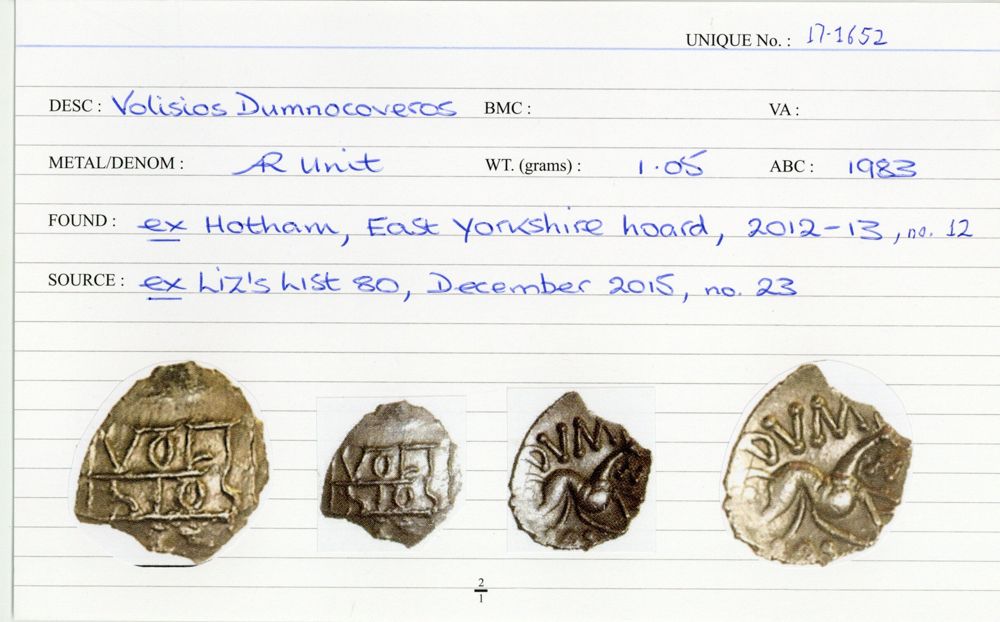 UNIQUE No. : 17-1652
DESC : Volisios Dumnocoveros BMC : VA :
METAL/DENOM : AR Unit WT. (grams) : 1.05 ABC : 1983
FOUND : ex Hotham, East Yorkshire hoard, 2012-13, no. 12
SOURCE : ex Liz's List 80, December 2015, no. 23
VOLI
SIOS
VOLI
SIOS
DVM
DVM
2
1